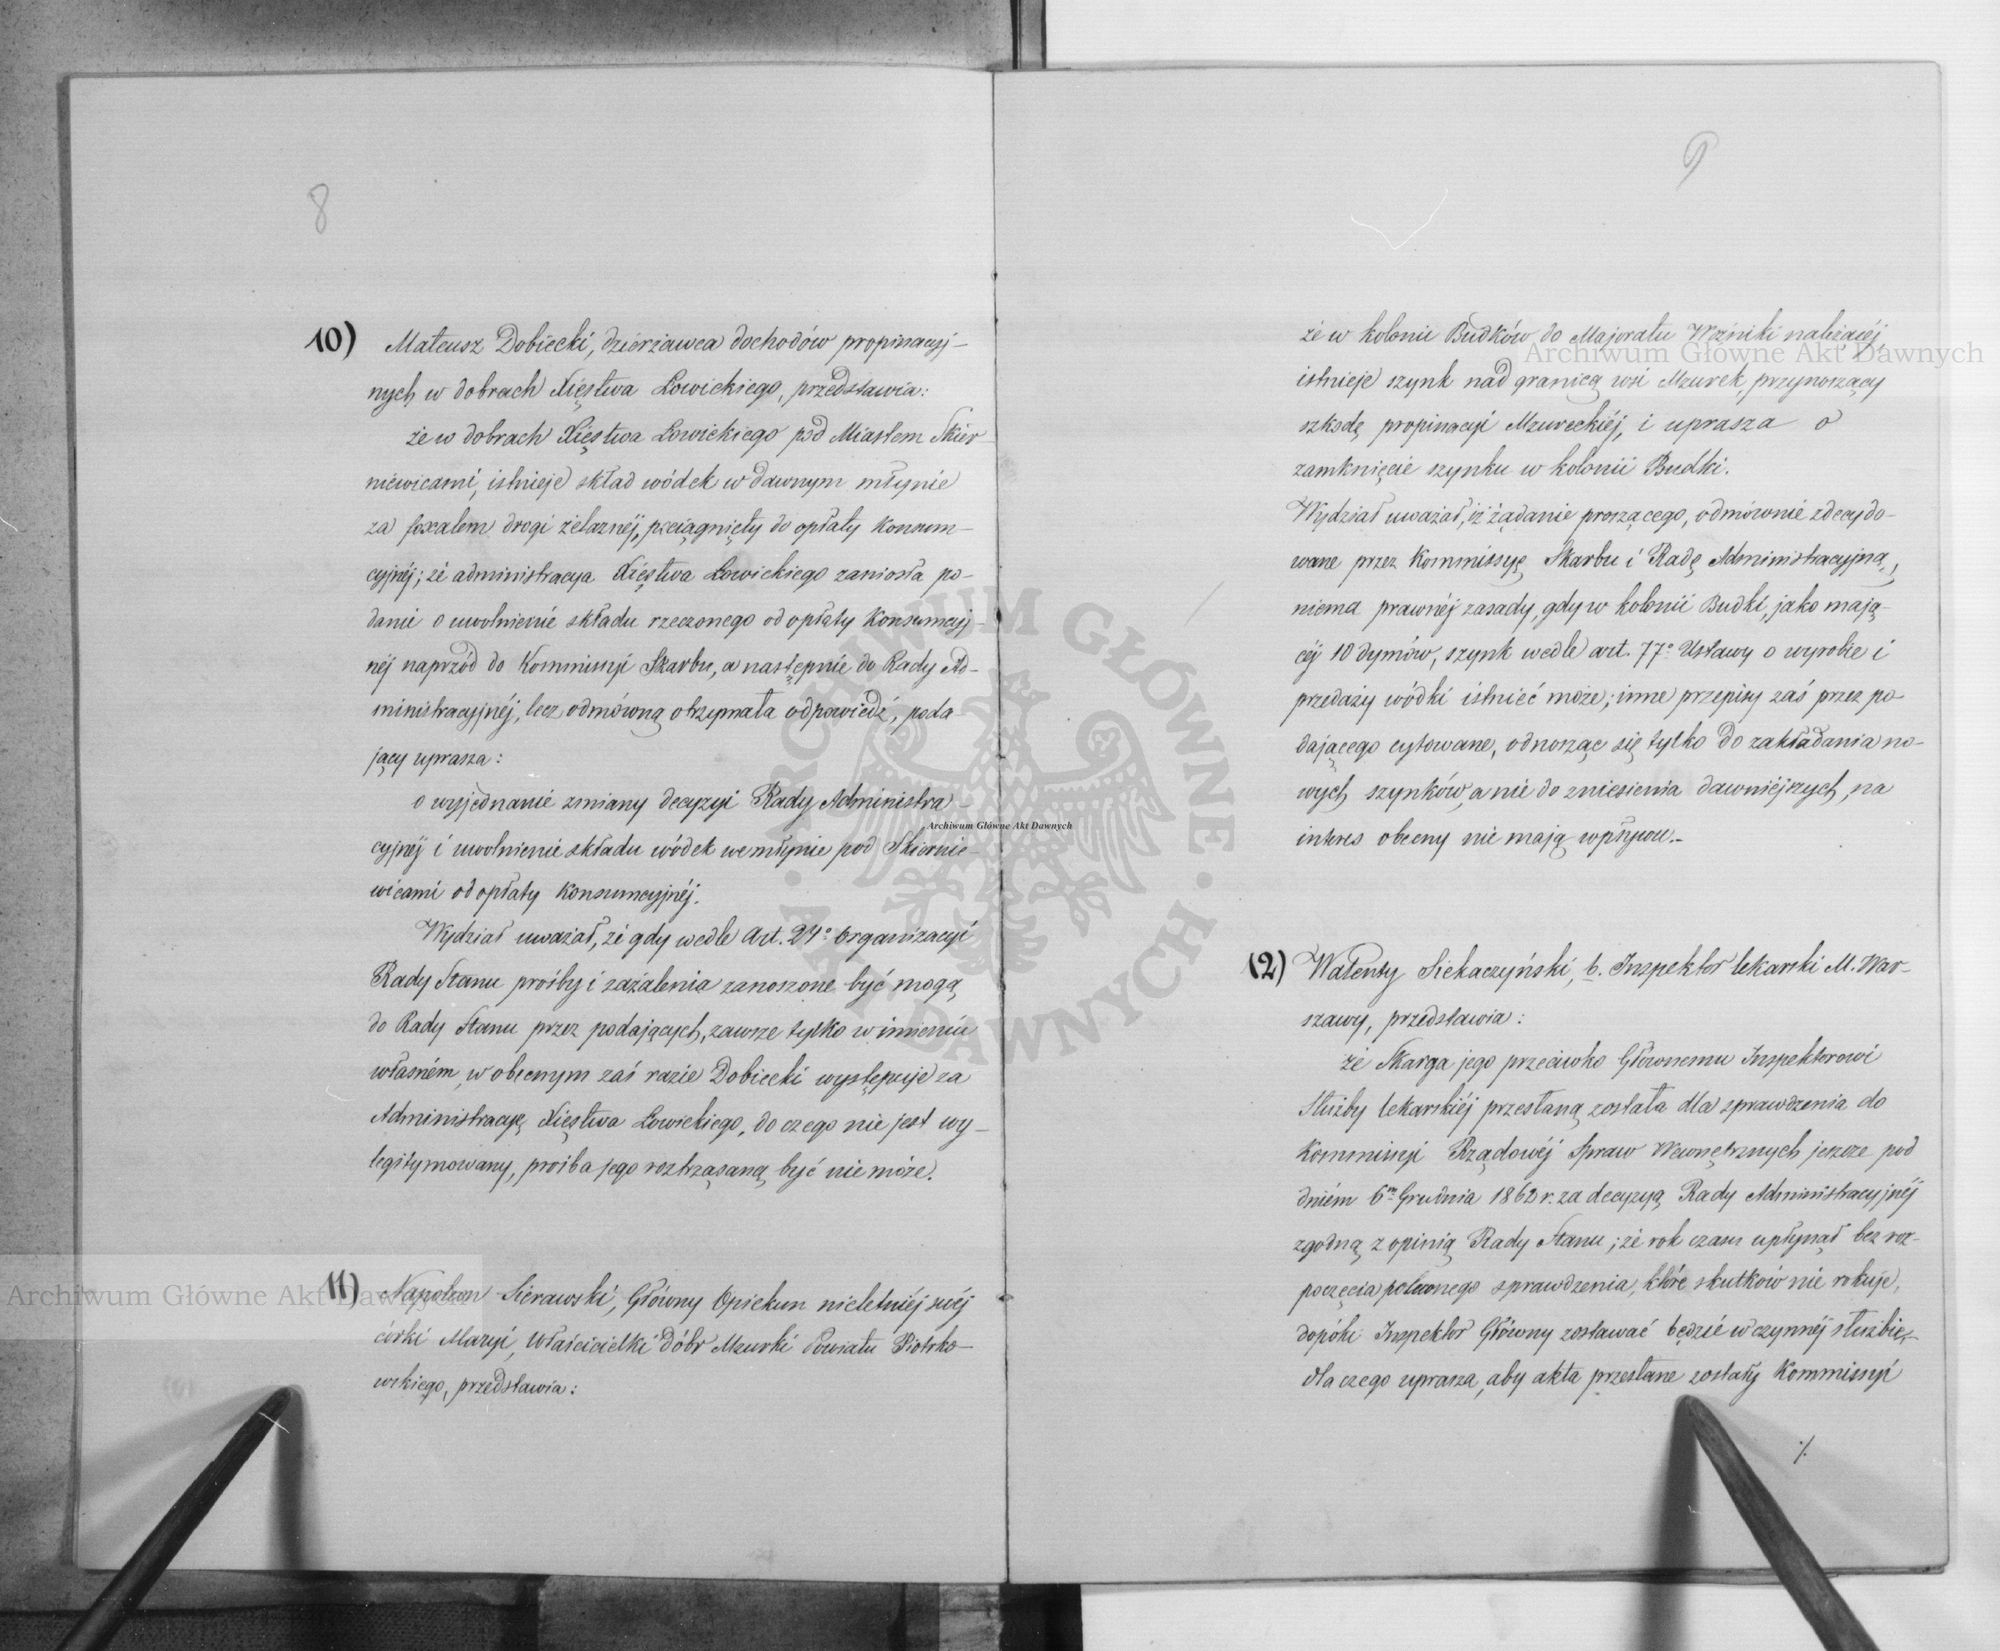 8
10) Mateusz Dobiecki, dzierżawca dochodów propinacyj-
nych w dobrach Xięstwa Łowickiego, przedstawia:
że w dobrach Xięstwa Łowickiego pod Miastem Skier-
niewicami, istnieje skład wódek w dawnym młynie
za foxalem drogi żelaznéj, pociągnięty do opłaty konsum-
cyjnéj; że administracya Xięstwa Łowickiego zaniosła po-
danie o uwolnienie składu rzeczonego od opłaty Konsumcyj-
néj naprzód do Kommissyi Skarbu, a następnie do Rady Ad-
ministracyjnéj, lecz odmówną otrzymała odpowiedź, poda-
jący uprasza:
o wyjednanie zmiany decyzyi Rady Administra-
cyjnéj i uwolnienie składu wódek we młynie pod Skiernie-
wicami od opłaty Konsumcyjnéj.
Wydział uważał, że gdy wedle Art. 24º Organizacyi
Rady Stanu prośby i zażalenia zanoszone być mogą
do Rady Stanu przez podających, zawsze tylko w imieniu
własném, w obecnym zaś razie Dobiecki występuje za
Administracyę Xięstwa Łowickiego, do czego nie jest wy-
legitymowany, prośba jego roztrząsaną być nie może.
11) Napoleon Sierawski, Główny Opiekun nieletniéj swéj
córki Maryi, Właścicielki dóbr Mzurki Powiatu Piotrko-
wskiego, przedstawia:
9
że w kolonii Budków do Majoratu Woźniki należącéj,
istnieje szynk nad granicą wsi Mzurek, przynoszący
szkodę propinacyi Mzureckiéj, i uprasza o
zamknięcie szynku w kolonii Budki.
Wydział uważał, iż żądanie proszącego, odmównie zdecydo-
wane przez Kommissyę Skarbu i Radę Administracyjną,
niema prawnéj zasady, gdy w kolonii Budki, jako mają-
céj 10 dymów, szynk wedle art. 77º Ustawy o wyrobie i
przedaży wódki istnieć może; inne przepisy zaś przez po-
dającego cytowane, odnosząc się tylko do zakładania no-
wych szynków, a nie do zniesienia dawniejszych, na
interes obecny nie mają wpływu.-
12) Walenty Siekaczyński, b. Inspektor lekarski M. War-
szawy, przedstawia:
że Skarga jego przeciwko Głównemu Inspektorowi
Służby lekarskiéj przesłaną została dla sprawdzenia do
Kommissyi Rządowéj Spraw Wewnętrznych jeszcze pod
dniem 6m Grudnia 1862 r. za decyzyą Rady Administracyjnéj
zgodną z opinią Rady Stanu; że rok czasu upłynął bez roz-
poczęcia poleconego sprawdzenia, które skutków nie rokuje,
dopóki Inspektor Główny zostawać będzie w czynnéj służbie,-
dla czego uprasza, aby akta przesłane zostały Kommissyi
./.
Archiwum Główne Akt Dawnych
Archiwum Główne Akt Dawnych
Archiwum Główne Akt Dawnych
ARCHIWUM GŁÓWNE AKT DAWNYCH